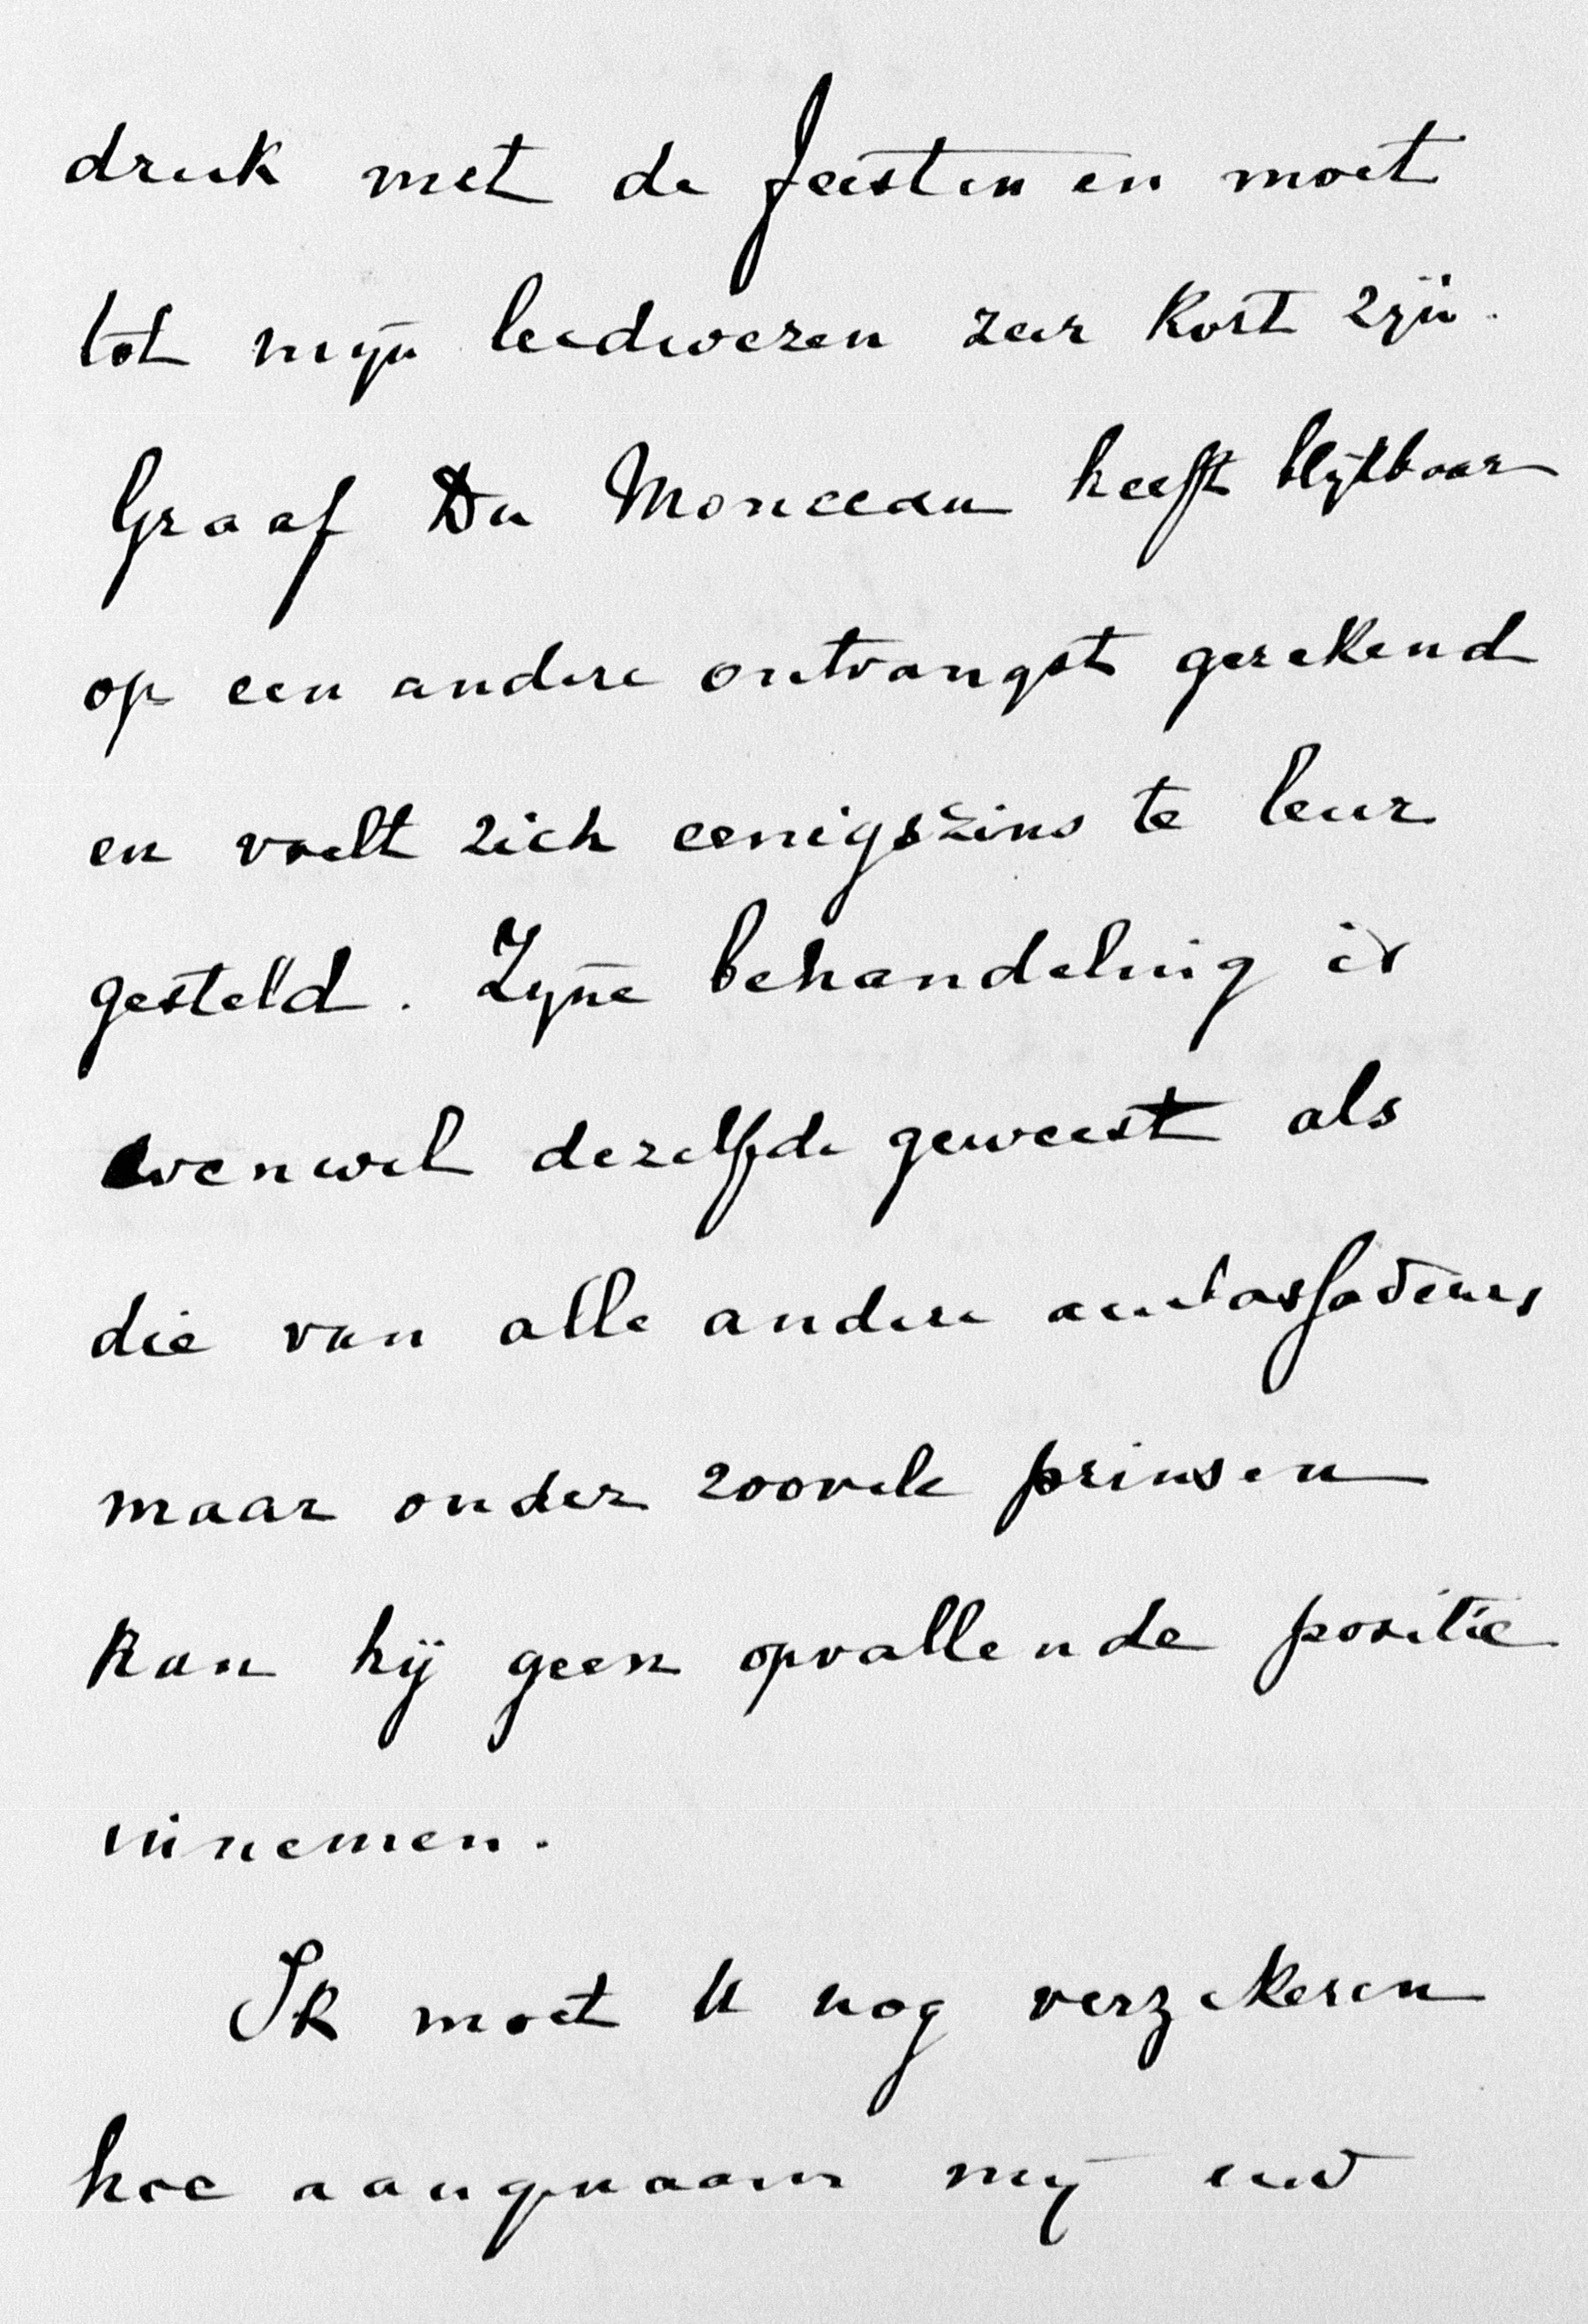 druk met de feesten en moet
tot mijn leedwezen zeer kort zijn.
Graaf Du Monceau heeft blijkbaar
op een andere ontvangst gerekend
en voelt zich eenigszins te leur
gesteld. Zijne behandeling is
evenwel dezelfde geweest als
die van alle andere ambassadeurs
maar onder zoovele prinsen
kan hij geen opvallende positie
innemen.
Ik moet U nog verzekeren
hoe aangenaam mij uw